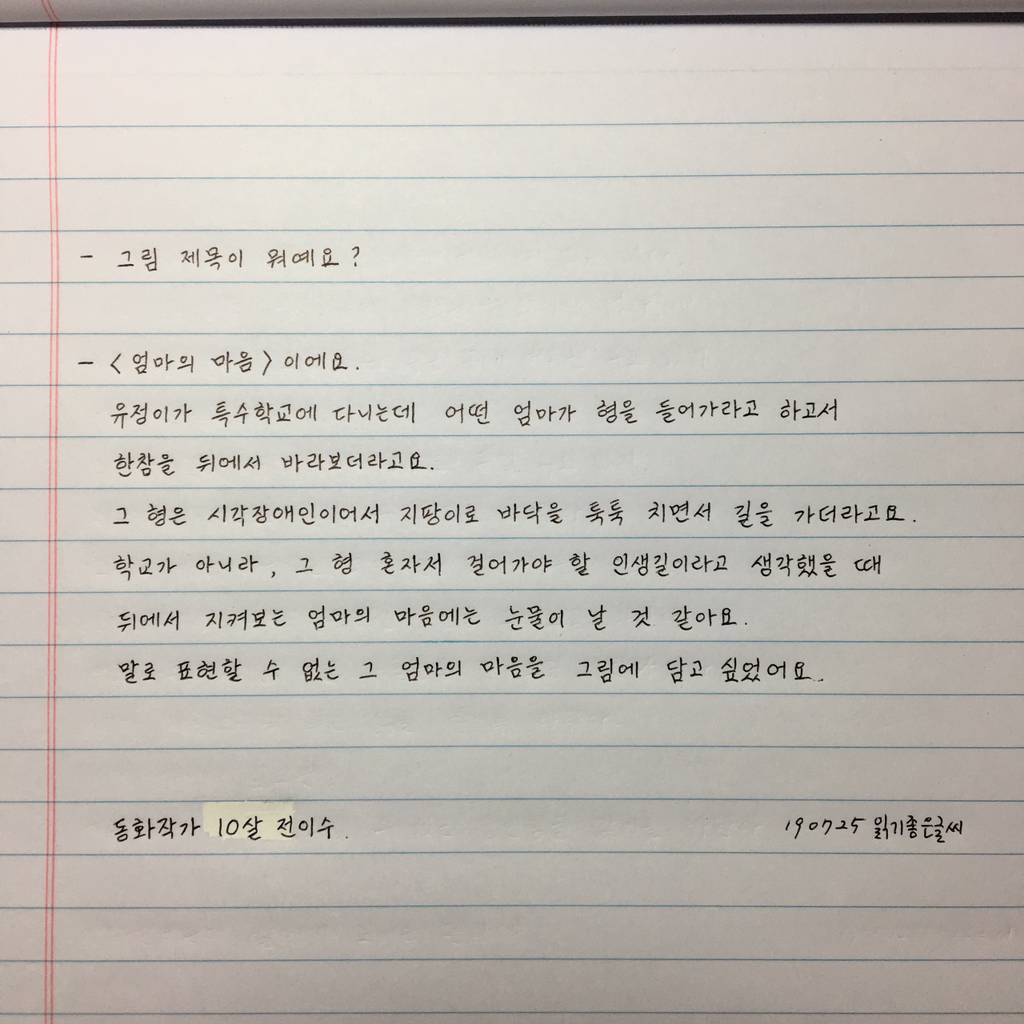 - 그림 제목이 뭐예요?
- <엄마의 마음>이에요.
유정이가 특수학교에 다니는데 어떤 엄마가 형을 들어가라고 하고서
한참을 뒤에서 바라보더라고요.
그 형은 시각장애인이어서 지팡이로 바닥을 툭툭 치면서 길을 가더라고요.
학교가 아니라, 그 형 혼자서 걸어가야 할 인생길이라고 생각했을 때
뒤에서 지켜보는 엄마의 마음에는 눈물이 날 것 같아요.
말로 표현할 수 없는 그 엄마의 마음을 그림에 담고 싶었어요.
동화작가 10살 전이수.
190725 읽기좋은글씨